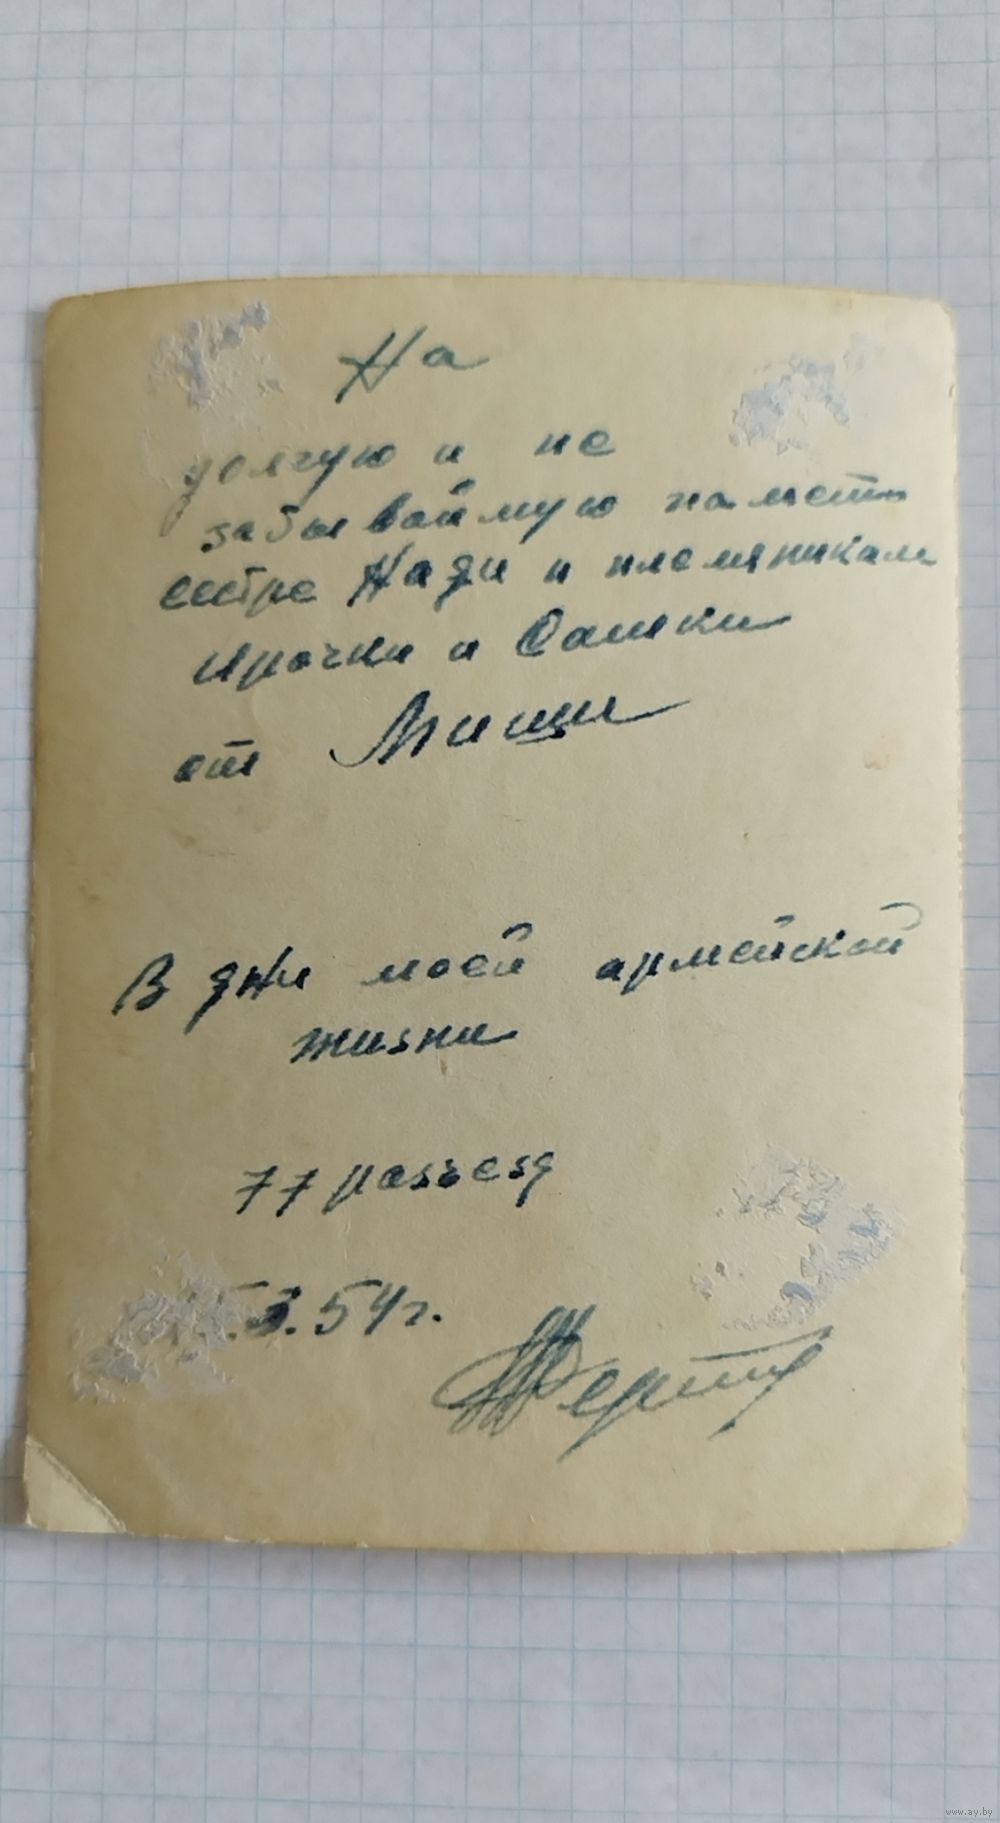 На
долгую и не
забываймую паметь
сестре Нади и племяникам
Ирочки и Сашки
от Миши
В дни моей армейской
жизни
77 разъезд
54г.
www.ay.by